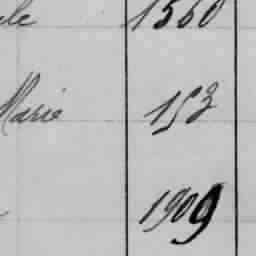 1560
Marie 153
1909